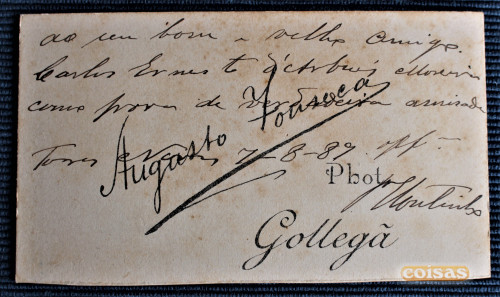 ao um bom e velho amigo
Carlos Ernesto d'Arbués Moreira
como prova de verdadeira amisade
Augusto Fonseca
Torres 7-8-89 off
Phot.
Gollegã
coisas